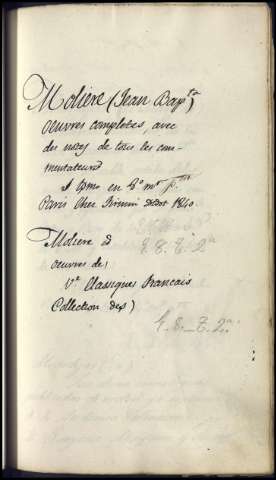 Moliere (Jean Bap.ta)
oeuvres completes, avec
des notes de tous les com-
mentateurs
en 8º
Paris Chez Firmin Didot 1840
Moliere
E. E. T. 2ª
oeuvres de)
Vª Classiques francais
Collection des)
4. E. T. 2ª